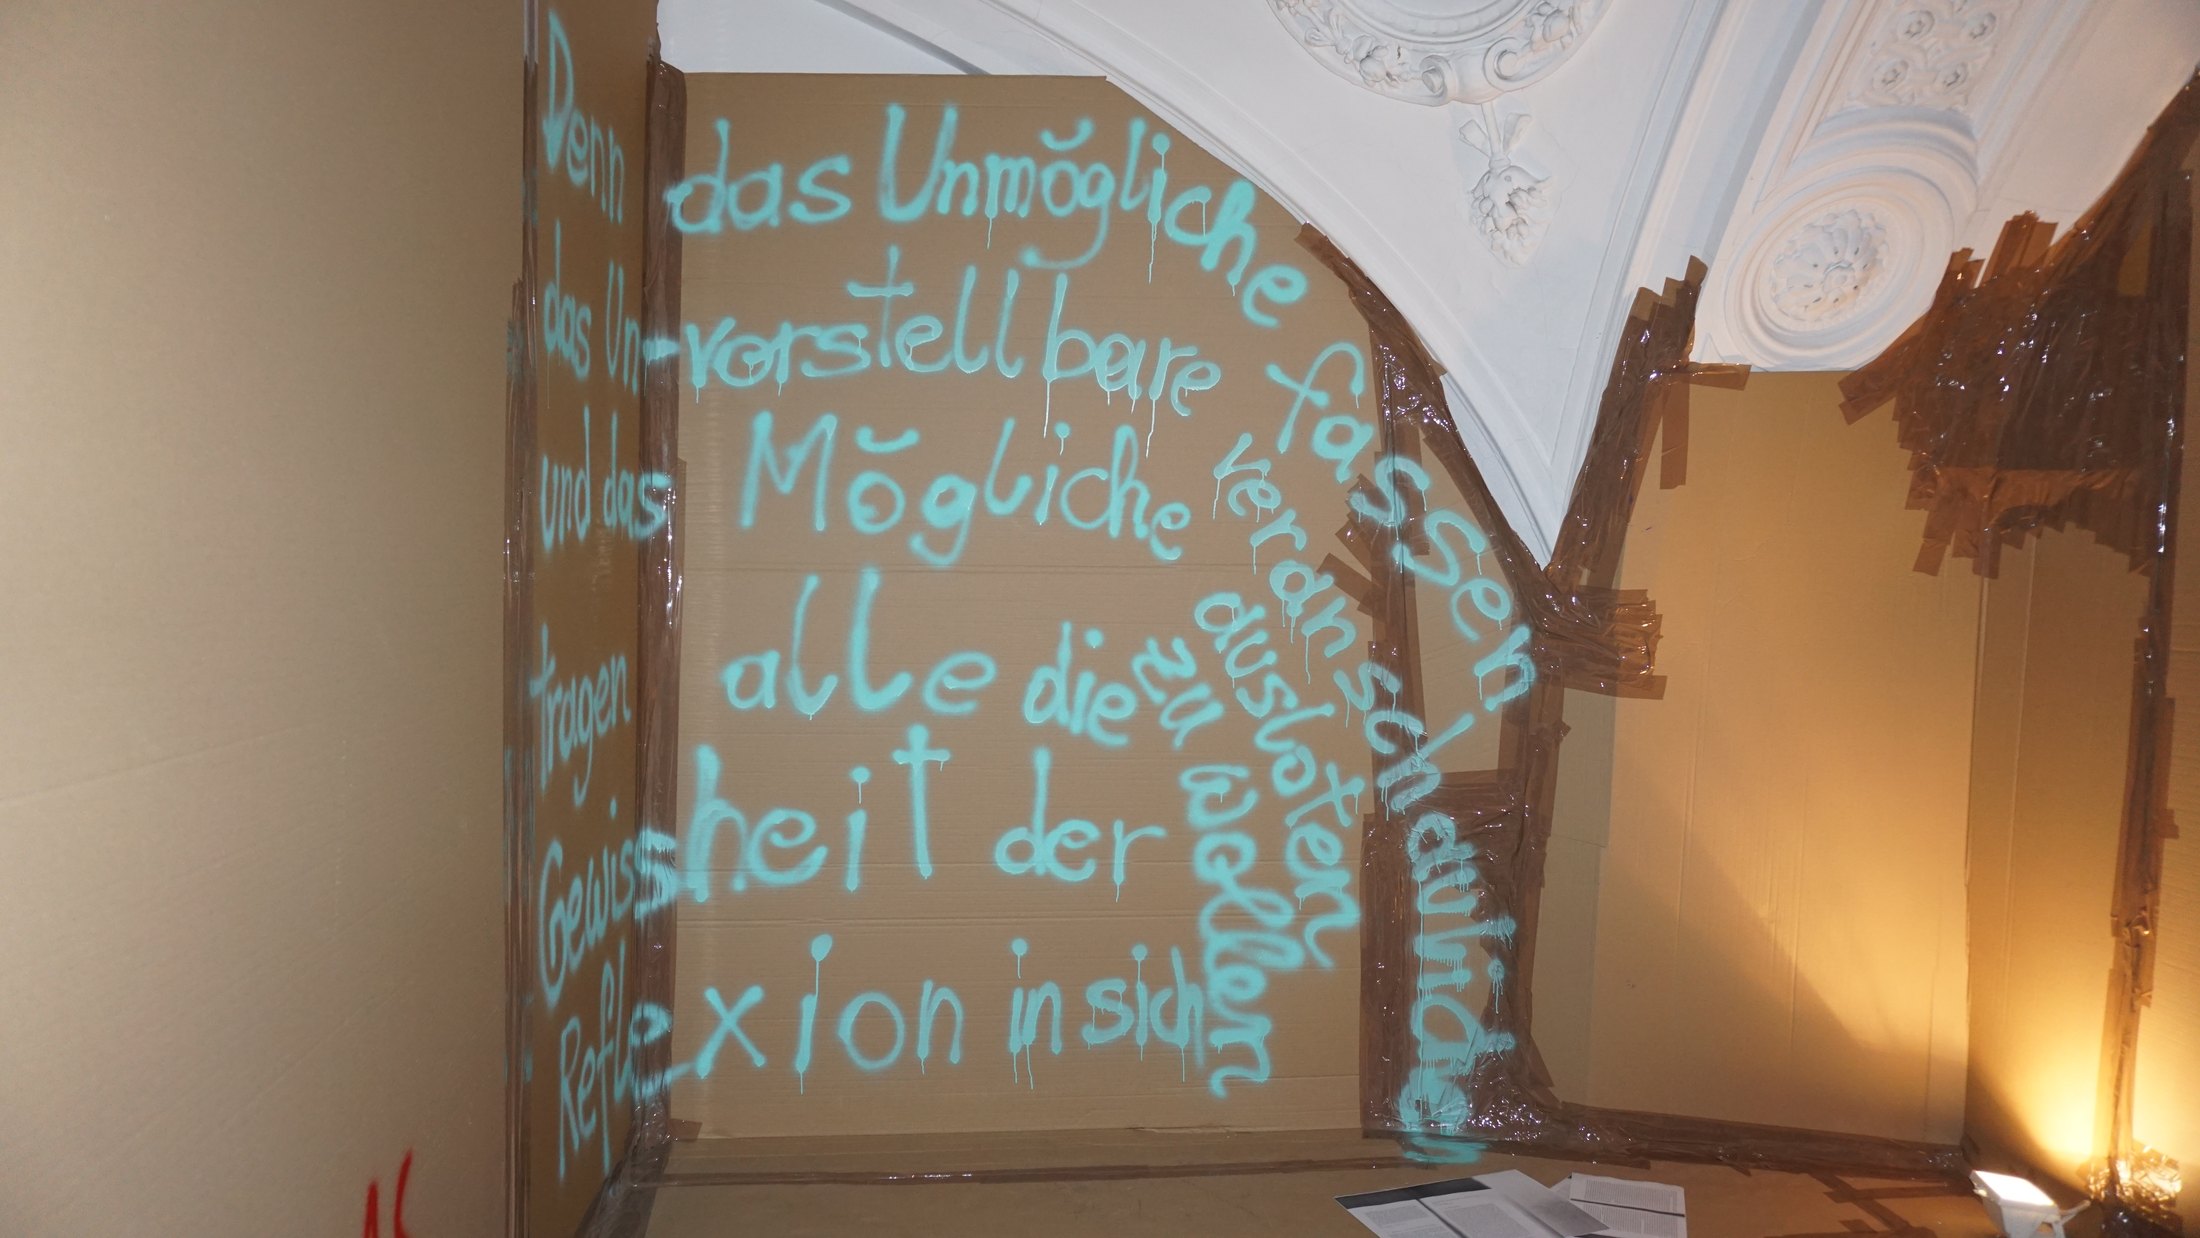 Denn das Unmögliche fassen
das Un-vorstellbare veranschaulichen
und das Mögliche ausloten
zu wollen
tragen alle die
Gewissheit der
Reflexion in sich